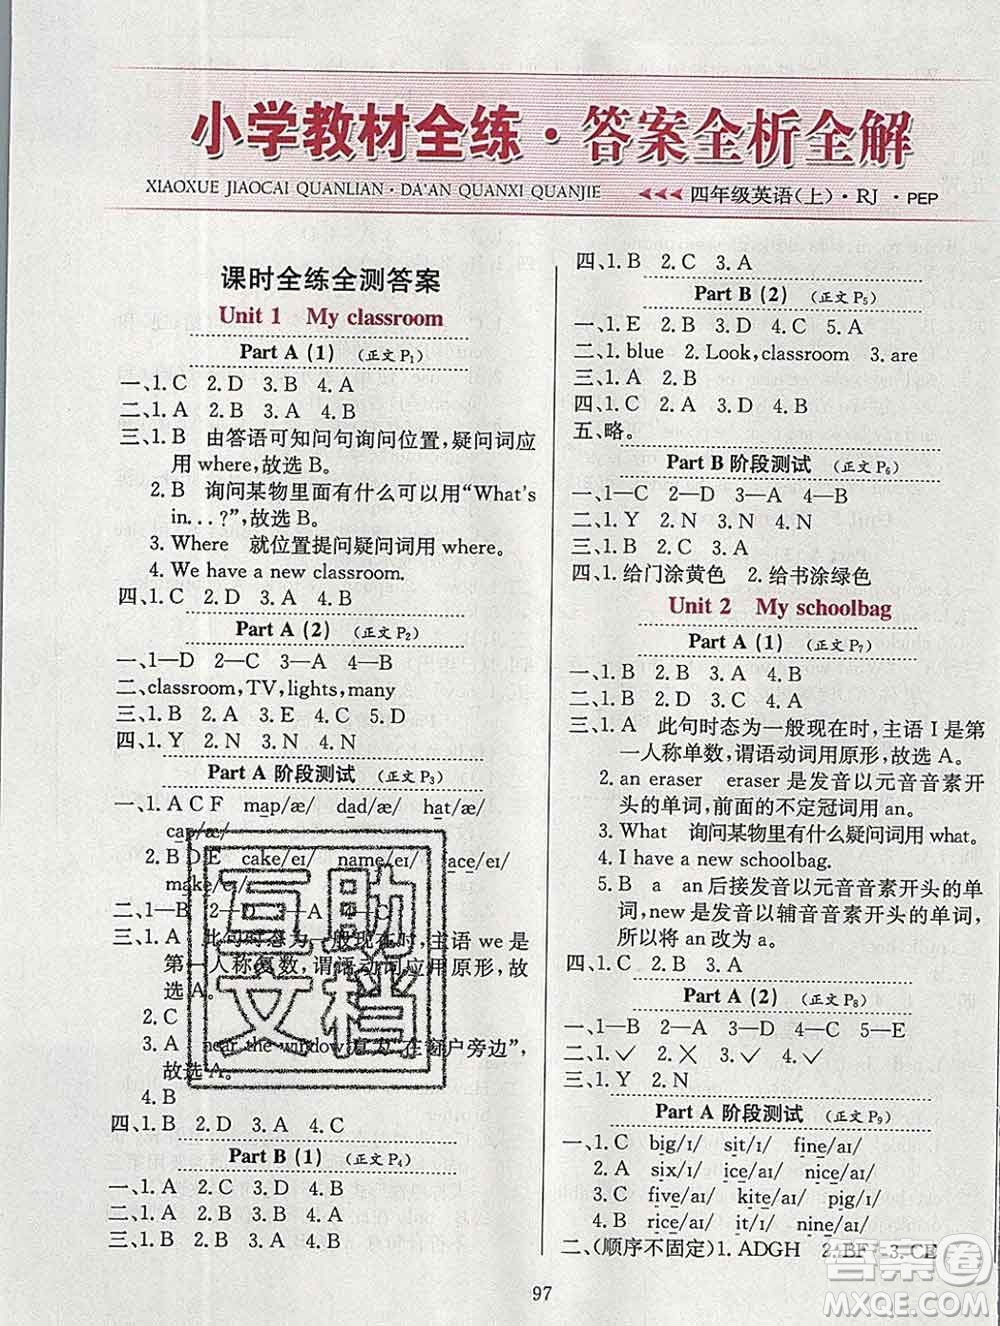 小学教材全练·答案全析全解
XIAOXUE JIAOCAI QUANLIAN · DA'AN QUANXI QUANJIE
四年级英语(上)·RJ·PEP
课时全练全测答案
Unit 1 My classroom
Part A (1) (正文 P1)
一、1. C 2. D 3. B 4. A
二、1. A 2. B 3. A 4. B
三、1. B 由答语可知问句询问位置,疑问词应
用 where,故选 B。
2. B 询问某物里面有什么可以用“What's
in. . . ?”,故选 B。
3. Where 就位置提问疑问词用 where。
4. We have a new classroom.
四、1. C 2. D 3. A 4. B
Part A (2) (正文 P2)
一、1—D 2—C 3—A 4—B
二、classroom, TV, lights, many
三、1. B 2. A 3. E 4. C 5. D
四、1. Y 2. N 3. N 4. N
Part A 阶段测试 (正文 P3)
一、1. A C F map/æ/ dad/æ/ hat/æ/
cap/æ/
2. B D E cake/eɪ/ name/eɪ/ face/eɪ/
make/eɪ/
二、1—B 2—D 3—A 4—C
三、1. A 此句时态为一般现在时,主语 we 是
第一人称复数,谓语动词应用原形,故
选 A。
2. C
3. A near the window 意为“在窗户旁边”,
故选 A。
4. B
四、1. B 2. D 3. A 4. C
Part B (1) (正文 P4)
一、1. A 2. C 3. D 4. B
二、1. A 2. B 3. A 4. B
三、1. B 2. A 3. A 4. B
四、1. B 2. C 3. A
Part B (2) (正文 P5)
一、1. E 2. B 3. D 4. C 5. A
二、1. blue 2. Look, classroom 3. are
三、1. A 2. B
四、1. C 2. A 3. D 4. B
五、略。
Part B 阶段测试 (正文 P6)
一、1—C 2—D 3—A 4—B
二、1. Y 2. N 3. N 4. N
三、1. B 2. C 3. D 4. A
四、1. 给门涂黄色 2. 给书涂绿色
Unit 2 My schoolbag
Part A (1) (正文 P7)
一、1. B 2. B 3. A 4. B
二、1. C 2. D 3. B 4. A
三、1. A 此句时态为一般现在时,主语 I 是第
一人称单数,谓语动词用原形,故选 A。
2. an eraser eraser 是发音以元音音素开
头的单词,前面的不定冠词用 an。
3. What 询问某物里有什么疑问词用 what。
4. I have a new schoolbag.
5. B a an 后接发音以元音音素开头的单
词,new 是发音以辅音音素开头的单词,
所以将 an 改为 a。
四、1. C 2. B 3. A
Part A (2) (正文 P8)
一、1—B 2—A 3—D 4—C 5—E
二、1. ✓ 2. ✗ 3. ✓ 4. ✓
三、1. Y 2. N
Part A 阶段测试 (正文 P9)
一、1. C big/ɪ/ sit/ɪ/ fine/aɪ/
2. A six/ɪ/ ice/aɪ/ nice/aɪ/
3. C five/aɪ/ kite/aɪ/ pig/ɪ/
4. B rice/aɪ/ it/ɪ/ nine/aɪ/
二、(顺序不固定)1. ADGH 2. BF 3. CE
97
互助
文档
答案圈
MXQE.COM